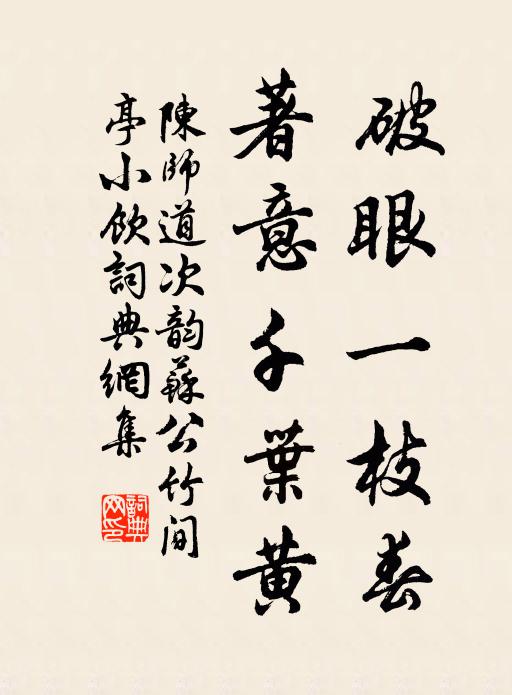 破眼一枝春
著意千葉黄
陳師道次韵蘇公竹间
亭小飲詞典網集
詞典
网印